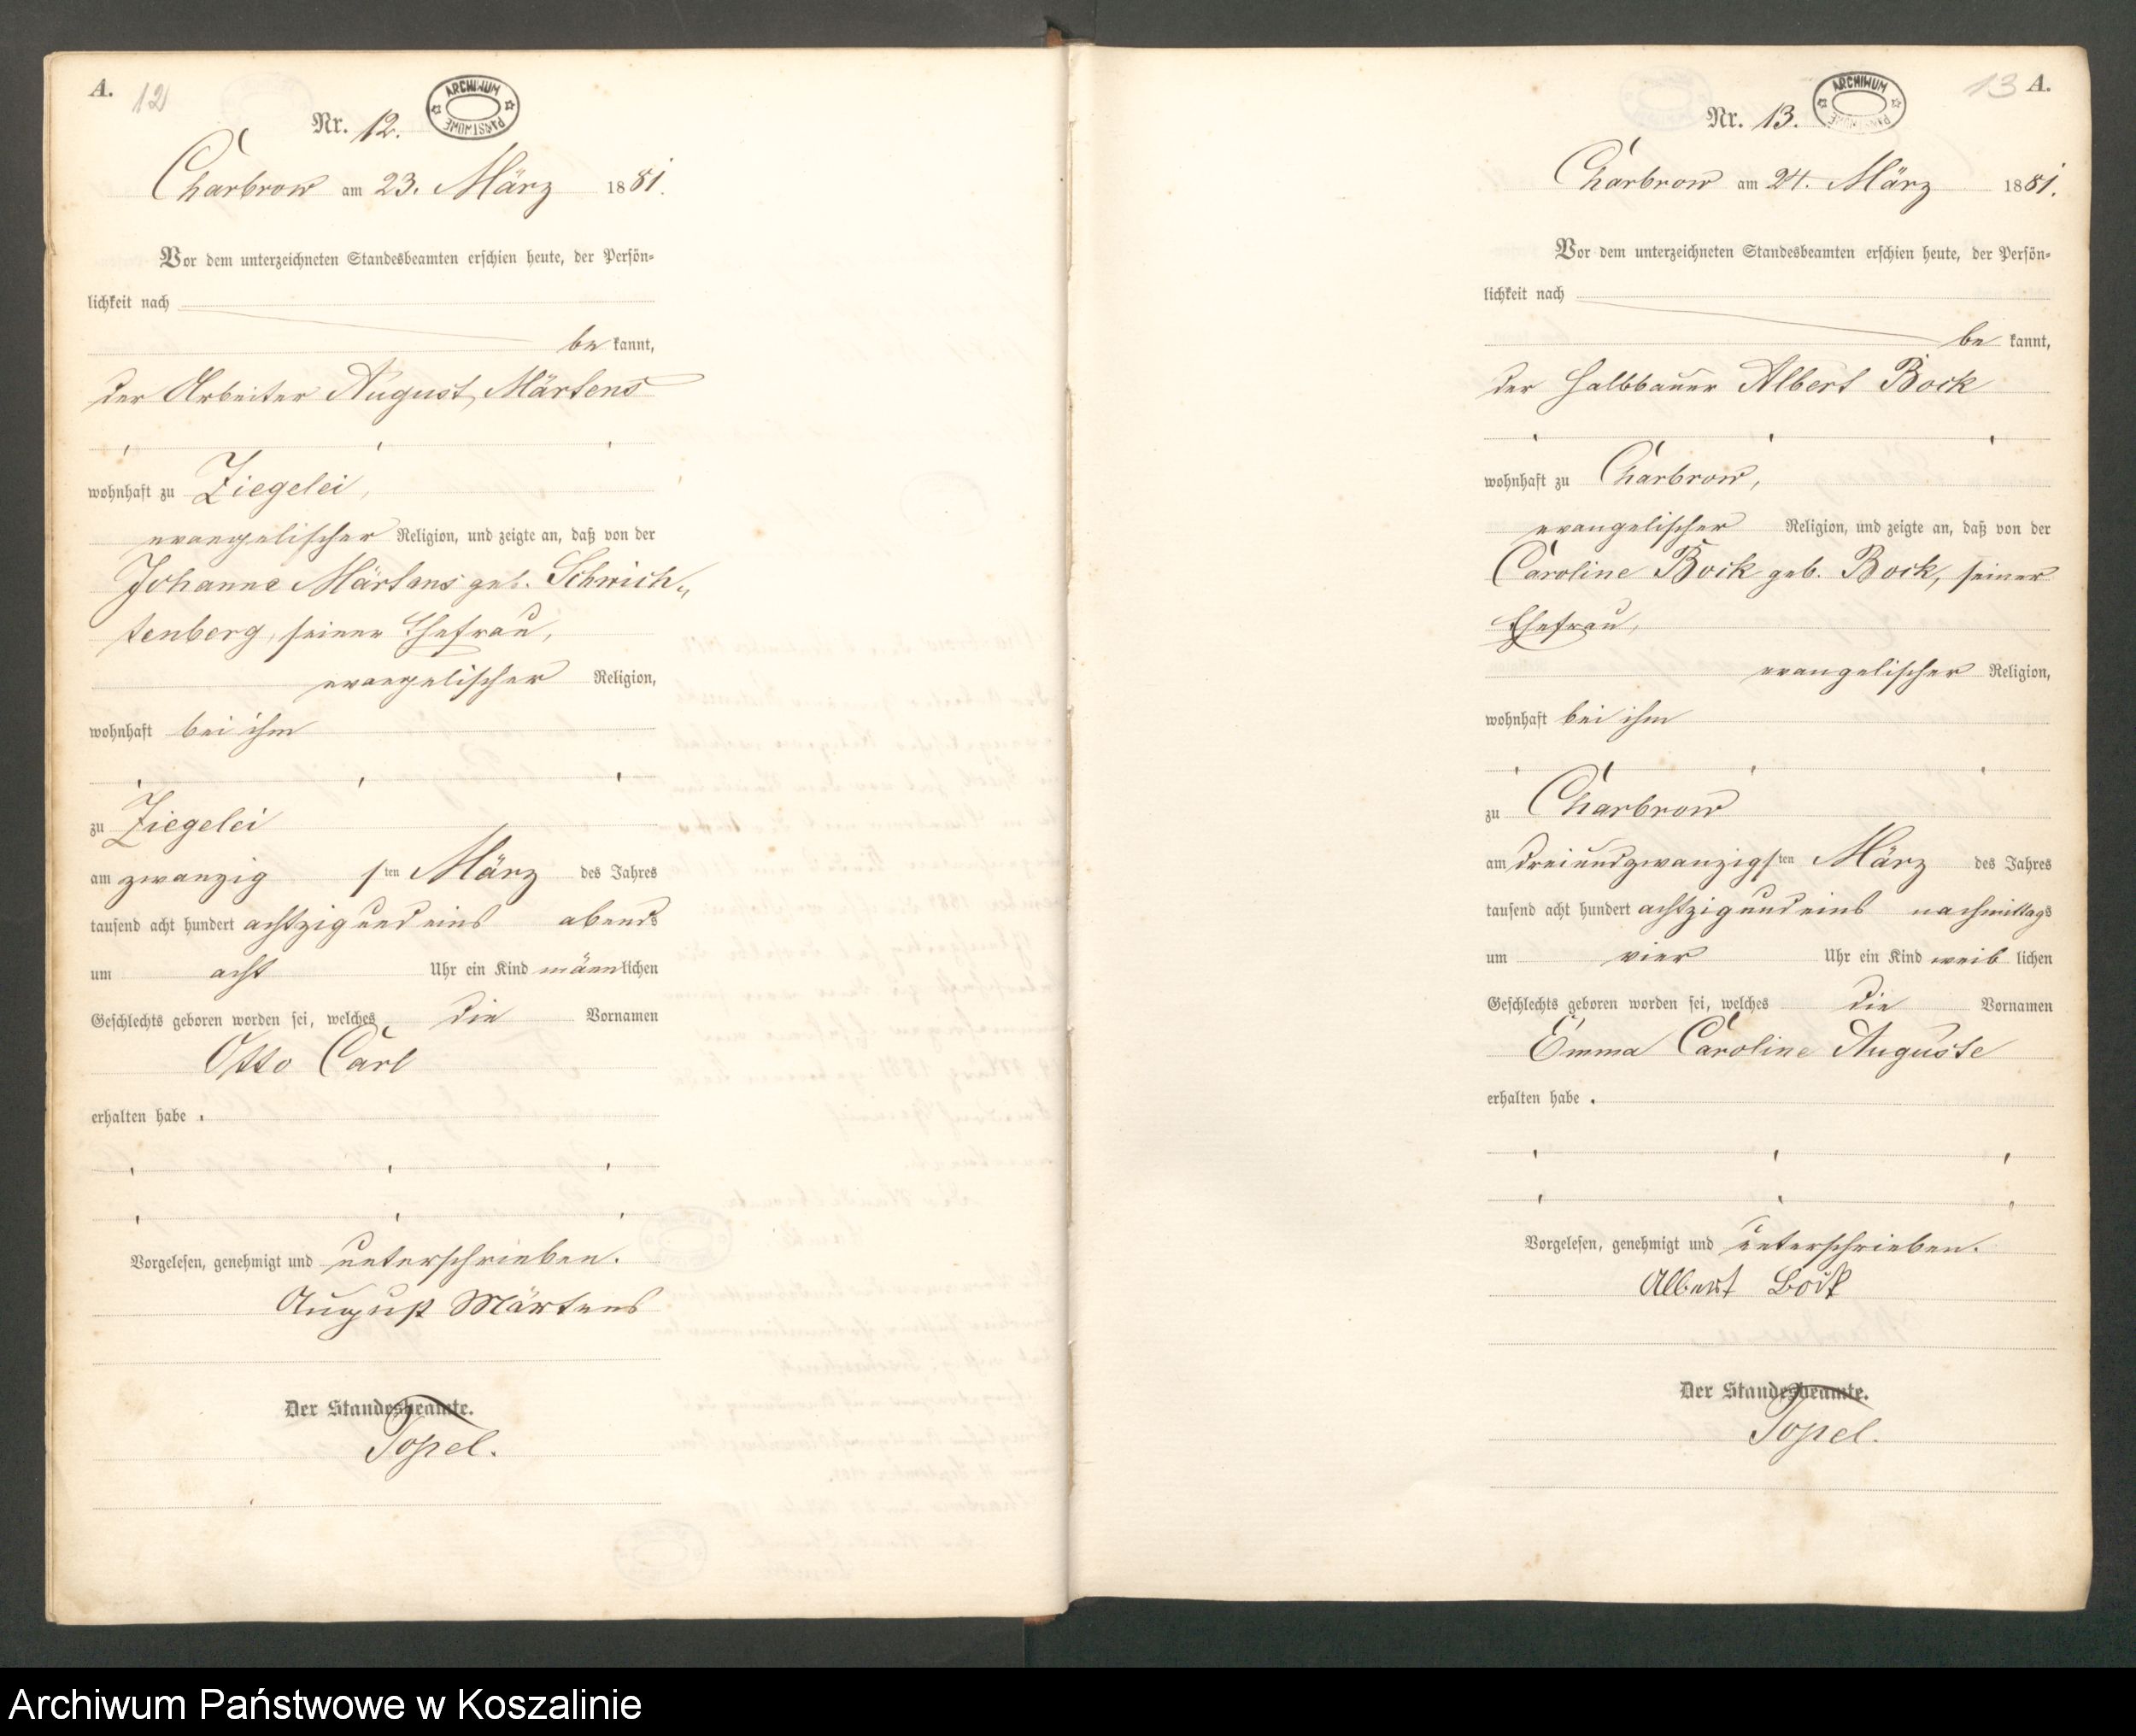 A.
12
Nr. 12.
ARCHIWUM PAŃSTWOWE
Charbrow am 23. März 1881.
Vor dem unterzeichneten Standesbeamten erschien heute, der Persön-
lichkeit nach
be kannt,
der Arbeiter August Märtens
wohnhaft zu Ziegelei,
evangelischer Religion, und zeigte an, daß von der
Johanne Märtens geb. Schwich-
tenberg, seiner Ehefrau,
evangelischer Religion,
wohnhaft bei ihm
zu Ziegelei
am zwanzigsten März des Jahres
tausend acht hundert achtzig und eins abends
um acht Uhr ein Kind männlichen
Geschlechts geboren worden sei, welches die Vornamen
Otto Carl
erhalten habe.
Vorgelesen, genehmigt und unterschrieben.
August Märtens
Der Standesbeamte.
Topel.
13 A.
Nr. 13.
ARCHIWUM PAŃSTWOWE
Charbrow am 24. März 1881.
Vor dem unterzeichneten Standesbeamten erschien heute, der Persön-
lichkeit nach
be kannt,
der Halbbauer Albert Bock
wohnhaft zu Charbrow,
evangelischer Religion, und zeigte an, daß von der
Caroline Bock geb. Bock, seiner
Ehefrau,
evangelischer Religion,
wohnhaft bei ihm
zu Charbrow
am dreiundzwanzigsten März des Jahres
tausend acht hundert achtzig und eins nachmittags
um vier Uhr ein Kind weiblichen
Geschlechts geboren worden sei, welches die Vornamen
Emma Caroline Auguste
erhalten habe.
Vorgelesen, genehmigt und unterschrieben.
Albert Bock
Der Standesbeamte.
Topel.
Archiwum Państwowe w Koszalinie